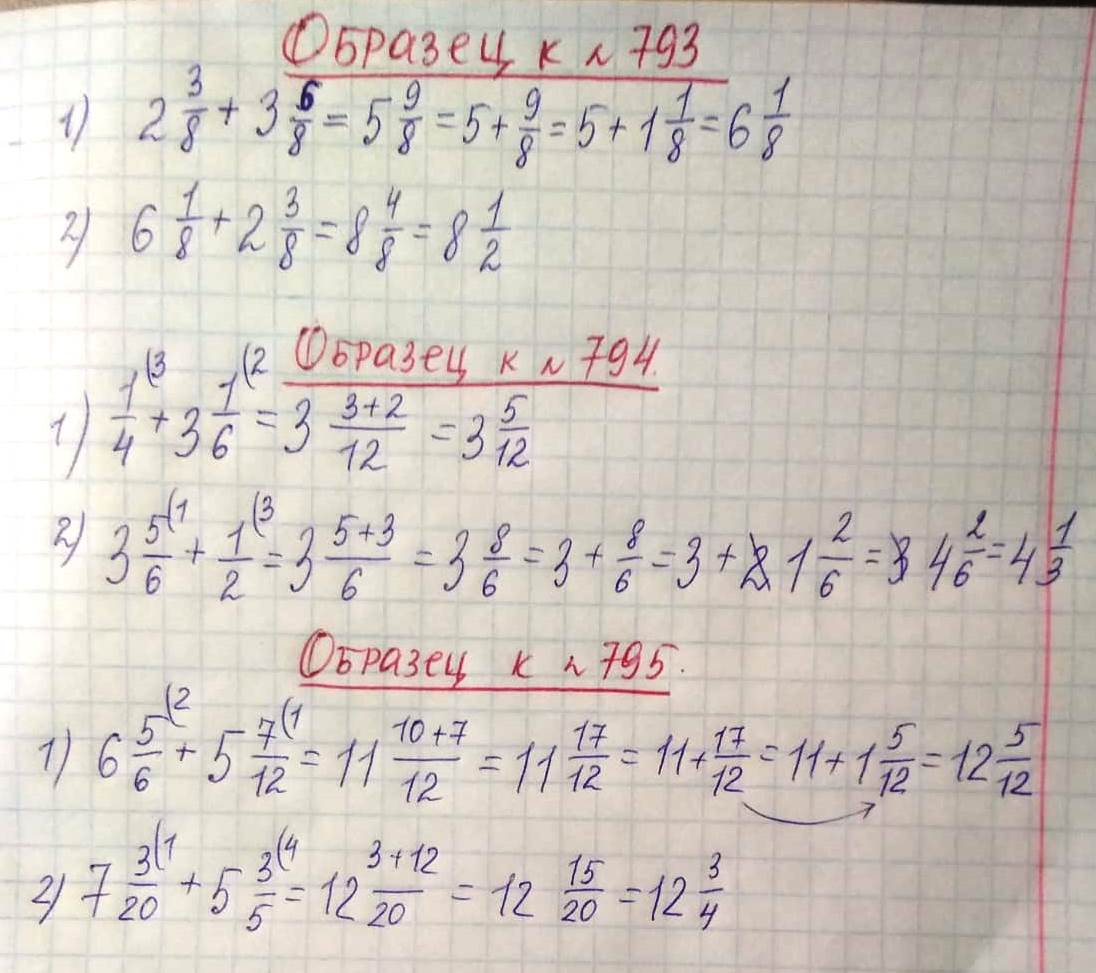 Образец к № 793
1) 2 3/8 + 3 6/8 = 5 9/8 = 5 + 9/8 = 5 + 1 1/8 = 6 1/8
2) 6 1/8 + 2 3/8 = 8 4/8 = 8 1/2
Образец к № 794.
1) 1/4 (3 + 3 1/6 (2 = 3 (3+2)/12 = 3 5/12
2) 3 5/6 (1 + 1/2 (3 = 3 (5+3)/6 = 3 8/6 = 3 + 8/6 = 3 + 1 2/6 = 4 2/6 = 4 1/3
Образец к № 795.
1) 6 5/6 (2 + 5 7/12 (1 = 11 (10+7)/12 = 11 17/12 = 11 + 17/12 = 11 + 1 5/12 = 12 5/12
2) 7 3/20 (1 + 5 3/5 (4 = 12 (3+12)/20 = 12 15/20 = 12 3/4